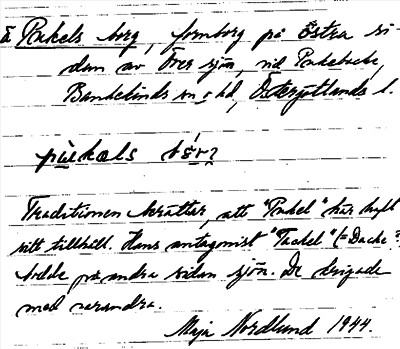 å Pukels borg, fornborg på Östra si-
dan av Över sjön, vid
Bankekinds sn o hd, Östergötlands l.
pùkəls bór?
Traditionen berättar, att "Pukel" har haft
sitt tillhåll. Hans antagonist "Tackel" (= Dacke?)
bodde på andra sidan sjön. De krigade
med varandra.
Maja Nordlund 1944.